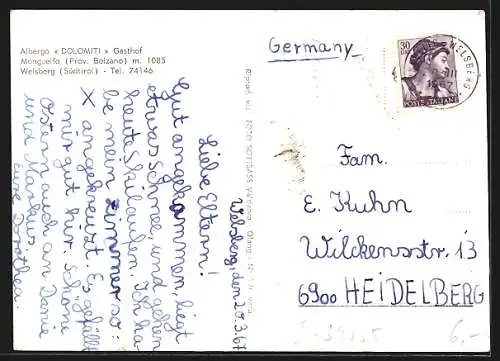 Albergo « DOLOMITI » Gasthof
Monguelfo (Prov. Bolzano) m. 1085
Welsberg (Südtirol) - Tel. 74146
Welsberg, den 20.3.67
Liebe Eltern!
Gut angekommen, liegt
etwas Schnee, und gehen
heute Skilaufen. Ich ha-
be mein Zimmer so:
X angekreuzt. Es gefällt
mir gut hier. Schöne
Ostern auch an
und Markus
eure Dorothea
FOTO
Germany
30
POSTE ITALIANE
WELSBERG
Fam.
E. Kuhn
Wilckensstr. 13
6900 HEIDELBERG
6,-